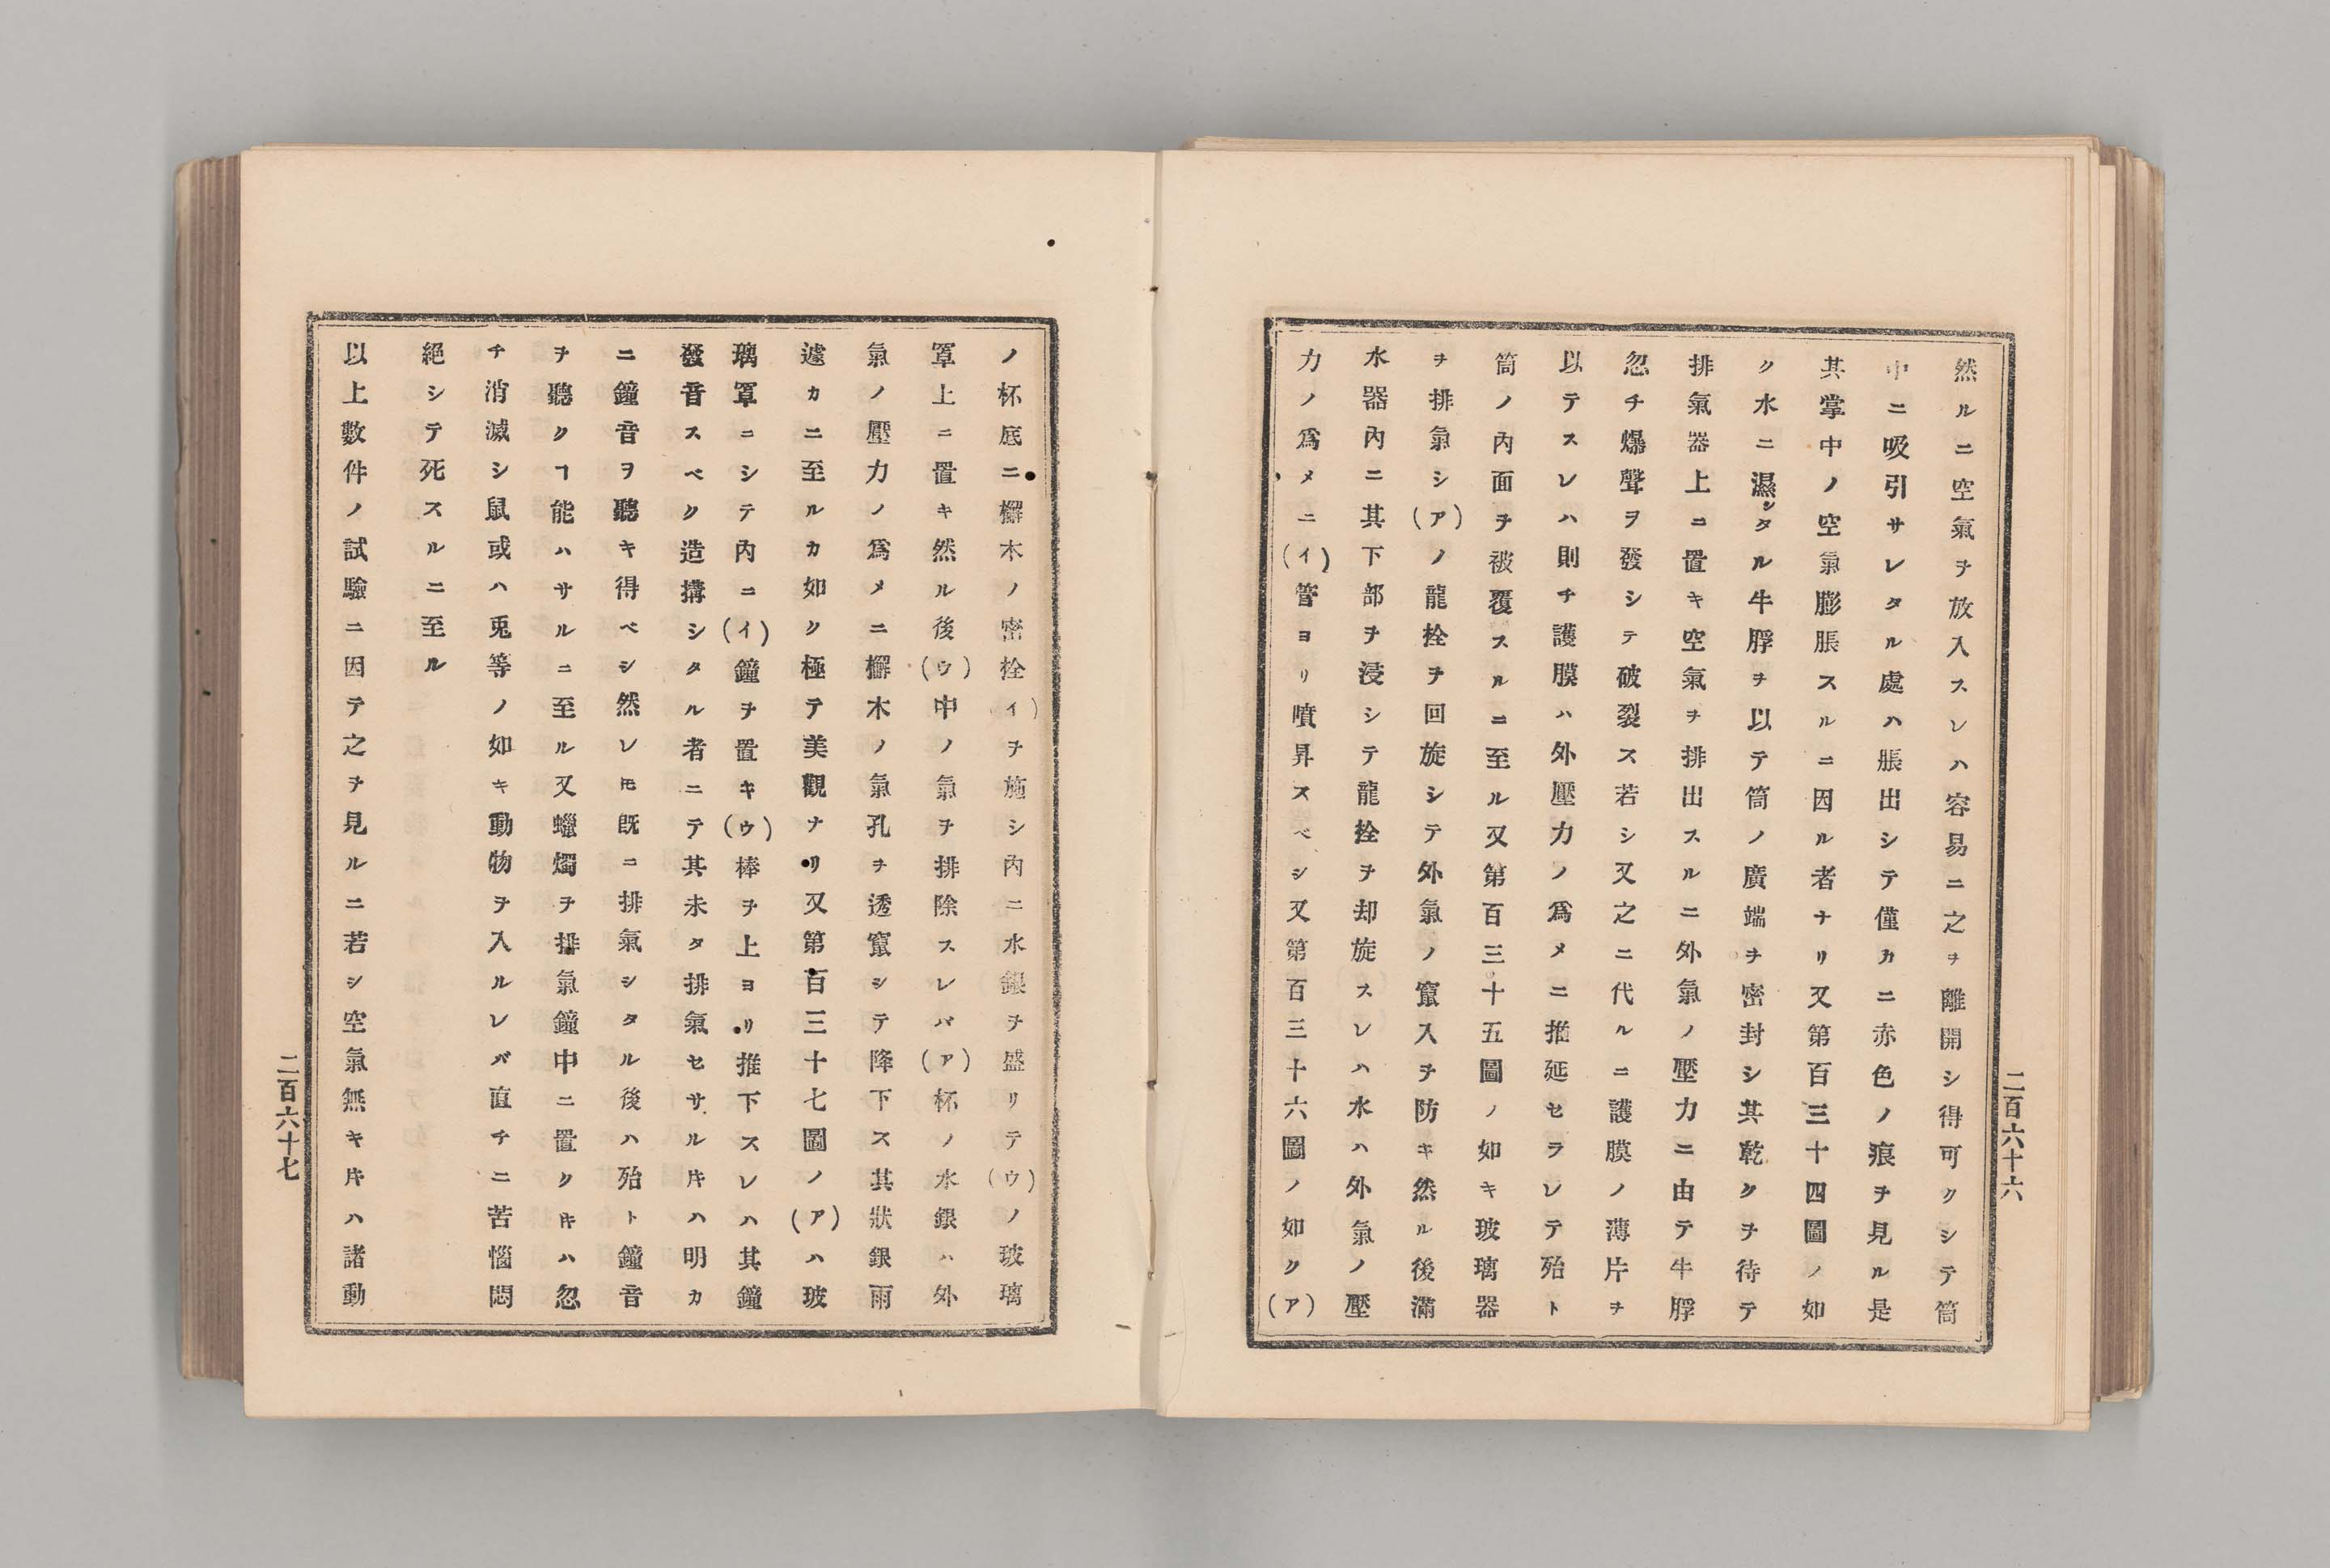 然ルニ空氣ヲ放入スレハ容易ニ之ヲ離開シ得可クシテ筒
中ニ吸引サレタル處ハ脹出シテ僅カニ赤色ノ痕ヲ見ル是
其掌中ノ空氣膨脹スルニ因ル者ナリ又第百三十四圖ノ如
ク水ニ濕シタル牛脬ヲ以テ筒ノ廣端ヲ密封シ其乾クヲ待テ
排氣器上ニ置キ空氣ヲ排出スルニ外氣ノ壓力ニ由テ牛脬
忽チ爆聲ヲ發シテ破裂ス若シ又之ニ代ルニ護膜ノ薄片ヲ
以テスレハ則チ護膜ハ外壓力ノ爲メニ推延セラレテ殆ト
筒ノ内面ヲ被覆スルニ至ル又第百三十五圖ノ如キ玻璃器
ヲ排氣シ(ア)ノ龍拴ヲ回旋シテ外氣ノ竄入ヲ防キ然ル後滿
水器內ニ其下部ヲ浸シテ龍拴ヲ却旋スレハ水ハ外氣ノ壓
力ノ爲メニ(イ)管ヨリ噴昇スベシ又第百三十六圖ノ如ク(ア)
二百六十六
ノ杯底ニ檞木ノ密拴(イ)ヲ施シ內ニ水銀ヲ盛リテ(ウ)ノ玻璃
罩上ニ置キ然ル後(ウ)中ノ氣ヲ排除スレバ(ア)杯ノ水銀ハ外
氣ノ壓力ノ爲メニ檞木ノ氣孔ヲ透竄シテ降下ス其狀銀雨
遽カニ至ルカ如ク極テ美觀ナリ又第百三十七圖ノ(ア)ハ玻
璃罩ニシテ內ニ(イ)鐘ヲ置キ(ウ)棒ヲ上ヨリ推下スレハ其鐘
發音スベク造搆シタル者ニテ其未タ排氣セサルキハ明カ
ニ鐘音ヲ聽キ得ベシ然レ𪜈既ニ排氣シタル後ハ殆ト鐘音
ヲ聽クヿ能ハサルニ至ル又蠟燭ヲ排氣鐘中ニ置クキハ忽
チ消滅シ鼠或ハ兎等ノ如キ動物ヲ入ルレバ直チニ苦惱悶
絕シテ死スルニ至ル
以上數件ノ試驗ニ因テ之ヲ見ルニ若シ空氣無キ𪜈ハ諸動
二百六十七